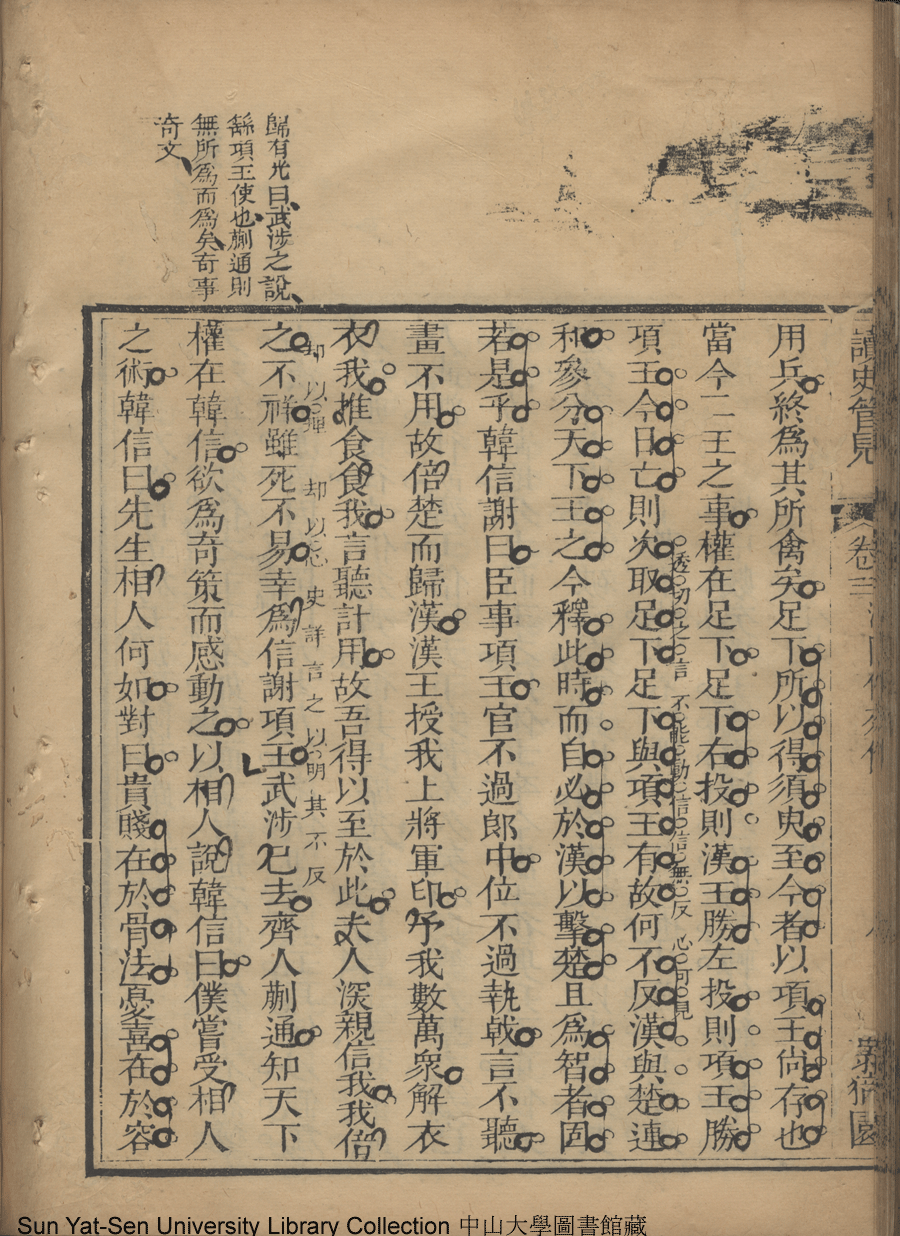 歸有光曰武涉之說
爲項王使也蒯通則
無所爲而爲矣奇事
奇文
讀史管見
卷三
用兵終爲其所禽矣足下所以得須臾至今者以項王尙存也
當今二王之事權在足下足下右投則漢王勝左投則項王勝
項王今日亡則次取足下足下與項王有故何不反漢與楚連
透切之言不能動信信無反心可見
和參分天下王之今釋此時而自必於漢以擊楚且爲智者固
若是乎韓信謝曰臣事項王官不過郎中位不過執戟言不聽
畫不用故倍楚而歸漢漢王授我上將軍印予我數萬衆解衣
衣我推食食我言聽計用故吾得以至於此夫人深親信我我倍
之不祥雖死不易幸爲信謝項王武涉已去齊人蒯通知天下
史詳言之以明其不反
權在韓信欲爲奇策而感動之以相人說韓信曰僕嘗受相人
之術韓信曰先生相人何如對曰貴賤在於骨法憂喜在於容
Sun Yat-Sen University Library Collection 中山大學圖書館藏